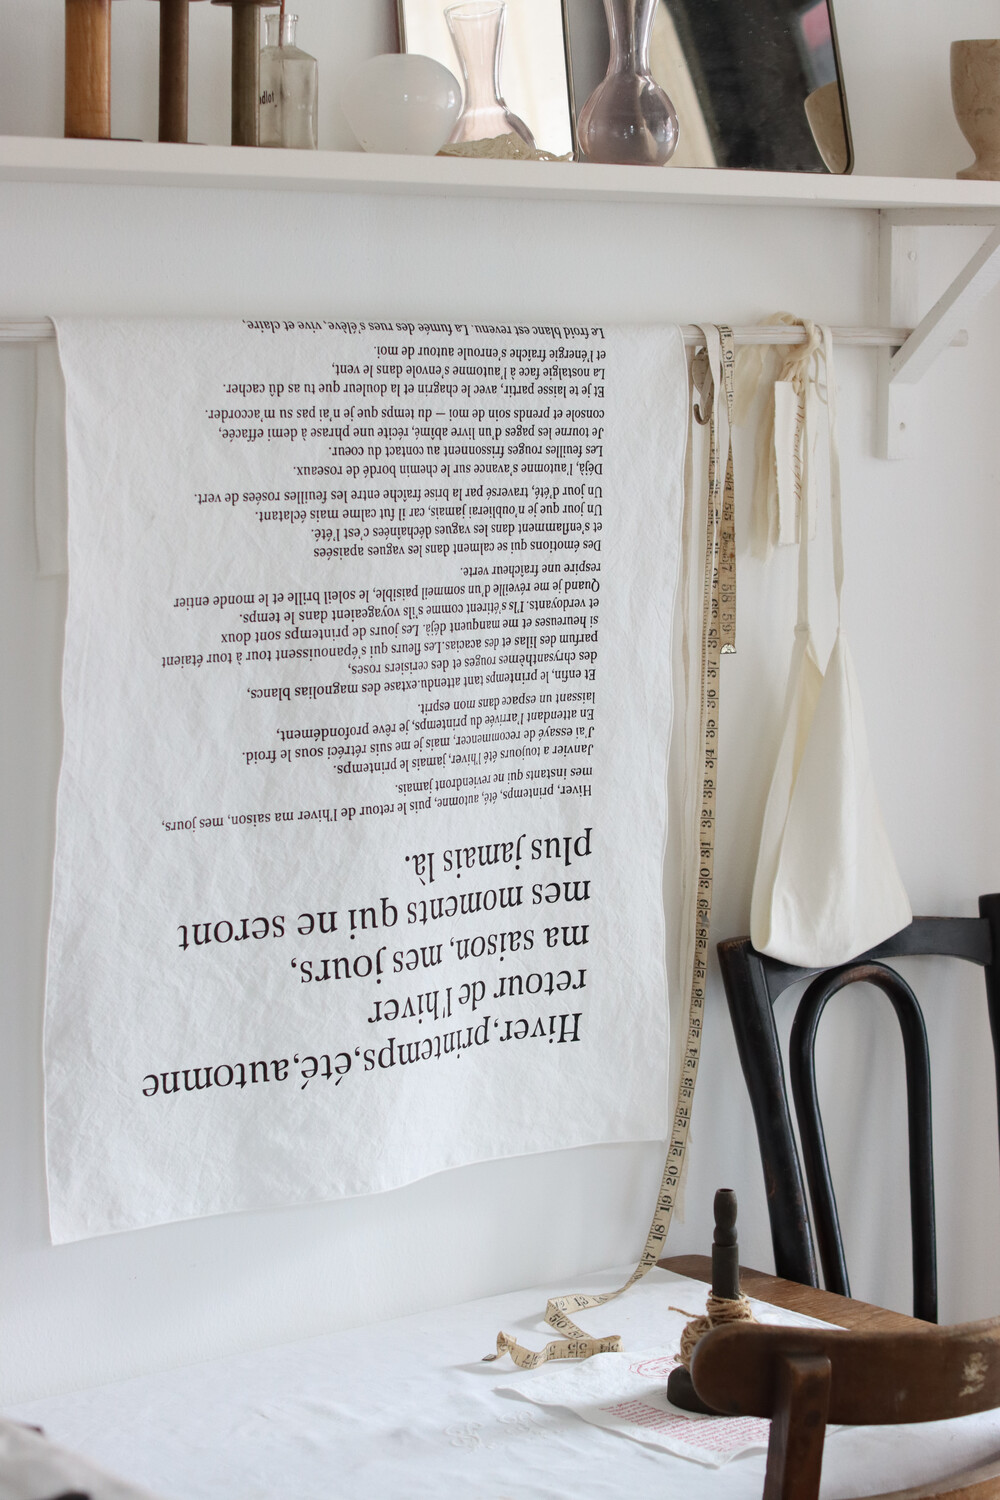 Hiver, printemps, été, automne
retour de l'hiver
ma saison, mes jours,
mes moments qui ne seront
plus jamais là.
Hiver, printemps, été, automne, puis le retour de l'hiver ma saison, mes jours,
mes instants qui ne reviendront jamais.
Janvier a toujours été l'hiver, jamais le printemps.
J'ai essayé de recommencer, mais je me suis rétréci sous le froid.
En attendant l'arrivée du printemps, je rêve profondément,
laissant un espace dans mon esprit.
Et enfin, le printemps tant attendu.extase des magnolias blancs,
des chrysanthèmes rouges et des cerisiers roses,
parfum des lilas et des acacias.Les fleurs qui s'épanouissent tour à tour étaient
si heureuses et me manquent déjà. Les jours de printemps sont doux
et verdoyants. Ils s'étirent comme s'ils voyageaient dans le temps.
Quand je me réveille d'un sommeil paisible, le soleil brille et le monde entier
respire une fraîcheur verte.
Des émotions qui se calment dans les vagues apaisées
et s'enflamment dans les vagues déchaînées c'est l'été.
Un jour que je n'oublierai jamais, car il fut calme mais éclatant.
Un jour d'été, traversé par la brise fraîche entre les feuilles rosées de vert.
Déjà, l'automne s'avance sur le chemin bordé de roseaux.
Les feuilles rouges frissonnent au contact du coeur.
Je tourne les pages d'un livre abîmé, récite une phrase à demi effacée,
console et prends soin de moi — du temps que je n'ai pas su m'accorder.
Et je te laisse partir, avec le chagrin et la douleur que tu as dû cacher.
La nostalgie face à l'automne s'envole dans le vent,
et l'énergie fraîche s'enroule autour de moi.
Le froid blanc est revenu. La fumée des rues s'élève, vive et claire,